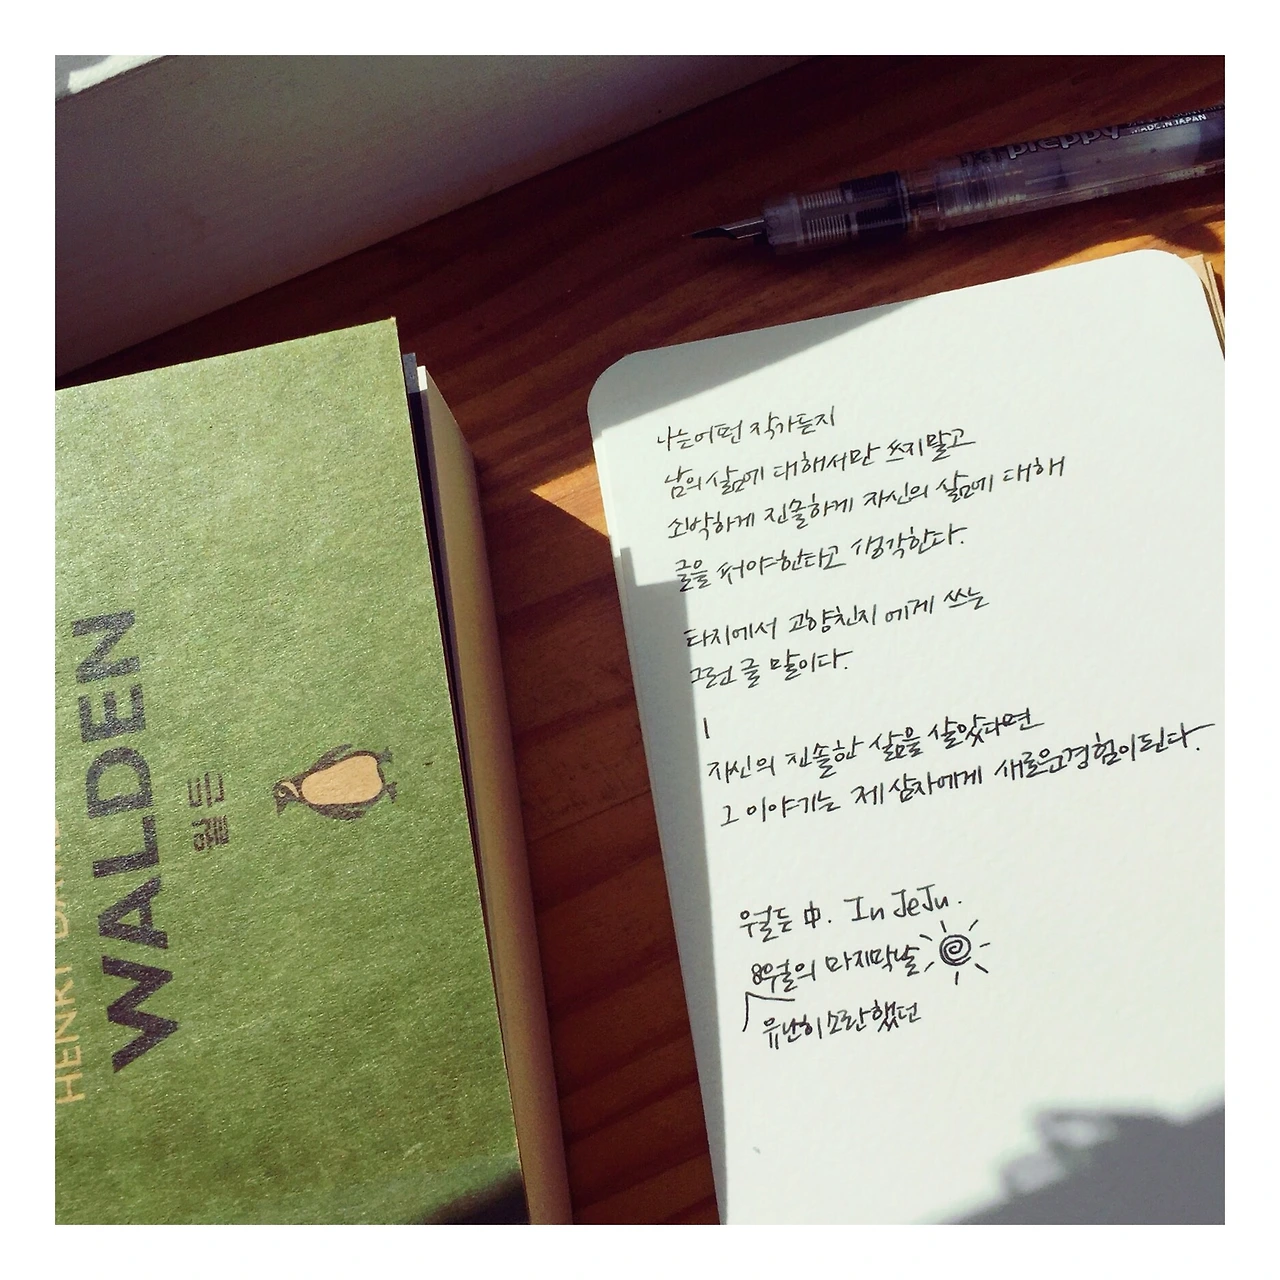 HENRY DAVID
WALDEN
월든
preppy
MADE IN JAPAN
나는 어떤 작가든지
남의 삶에 대해서만 쓰지말고
소박하게 진솔하게 자신의 삶에 대해
글을 써야한다고 생각한다.
타지에서 고향친지 에게 쓰는
그런 글 말이다.
자신의 진솔한 삶을 살았다면
그 이야기는 제 삼자에게 새로운경험이된다.
월든 中. In JeJu.
8월의 마지막날
유난히 소란했던